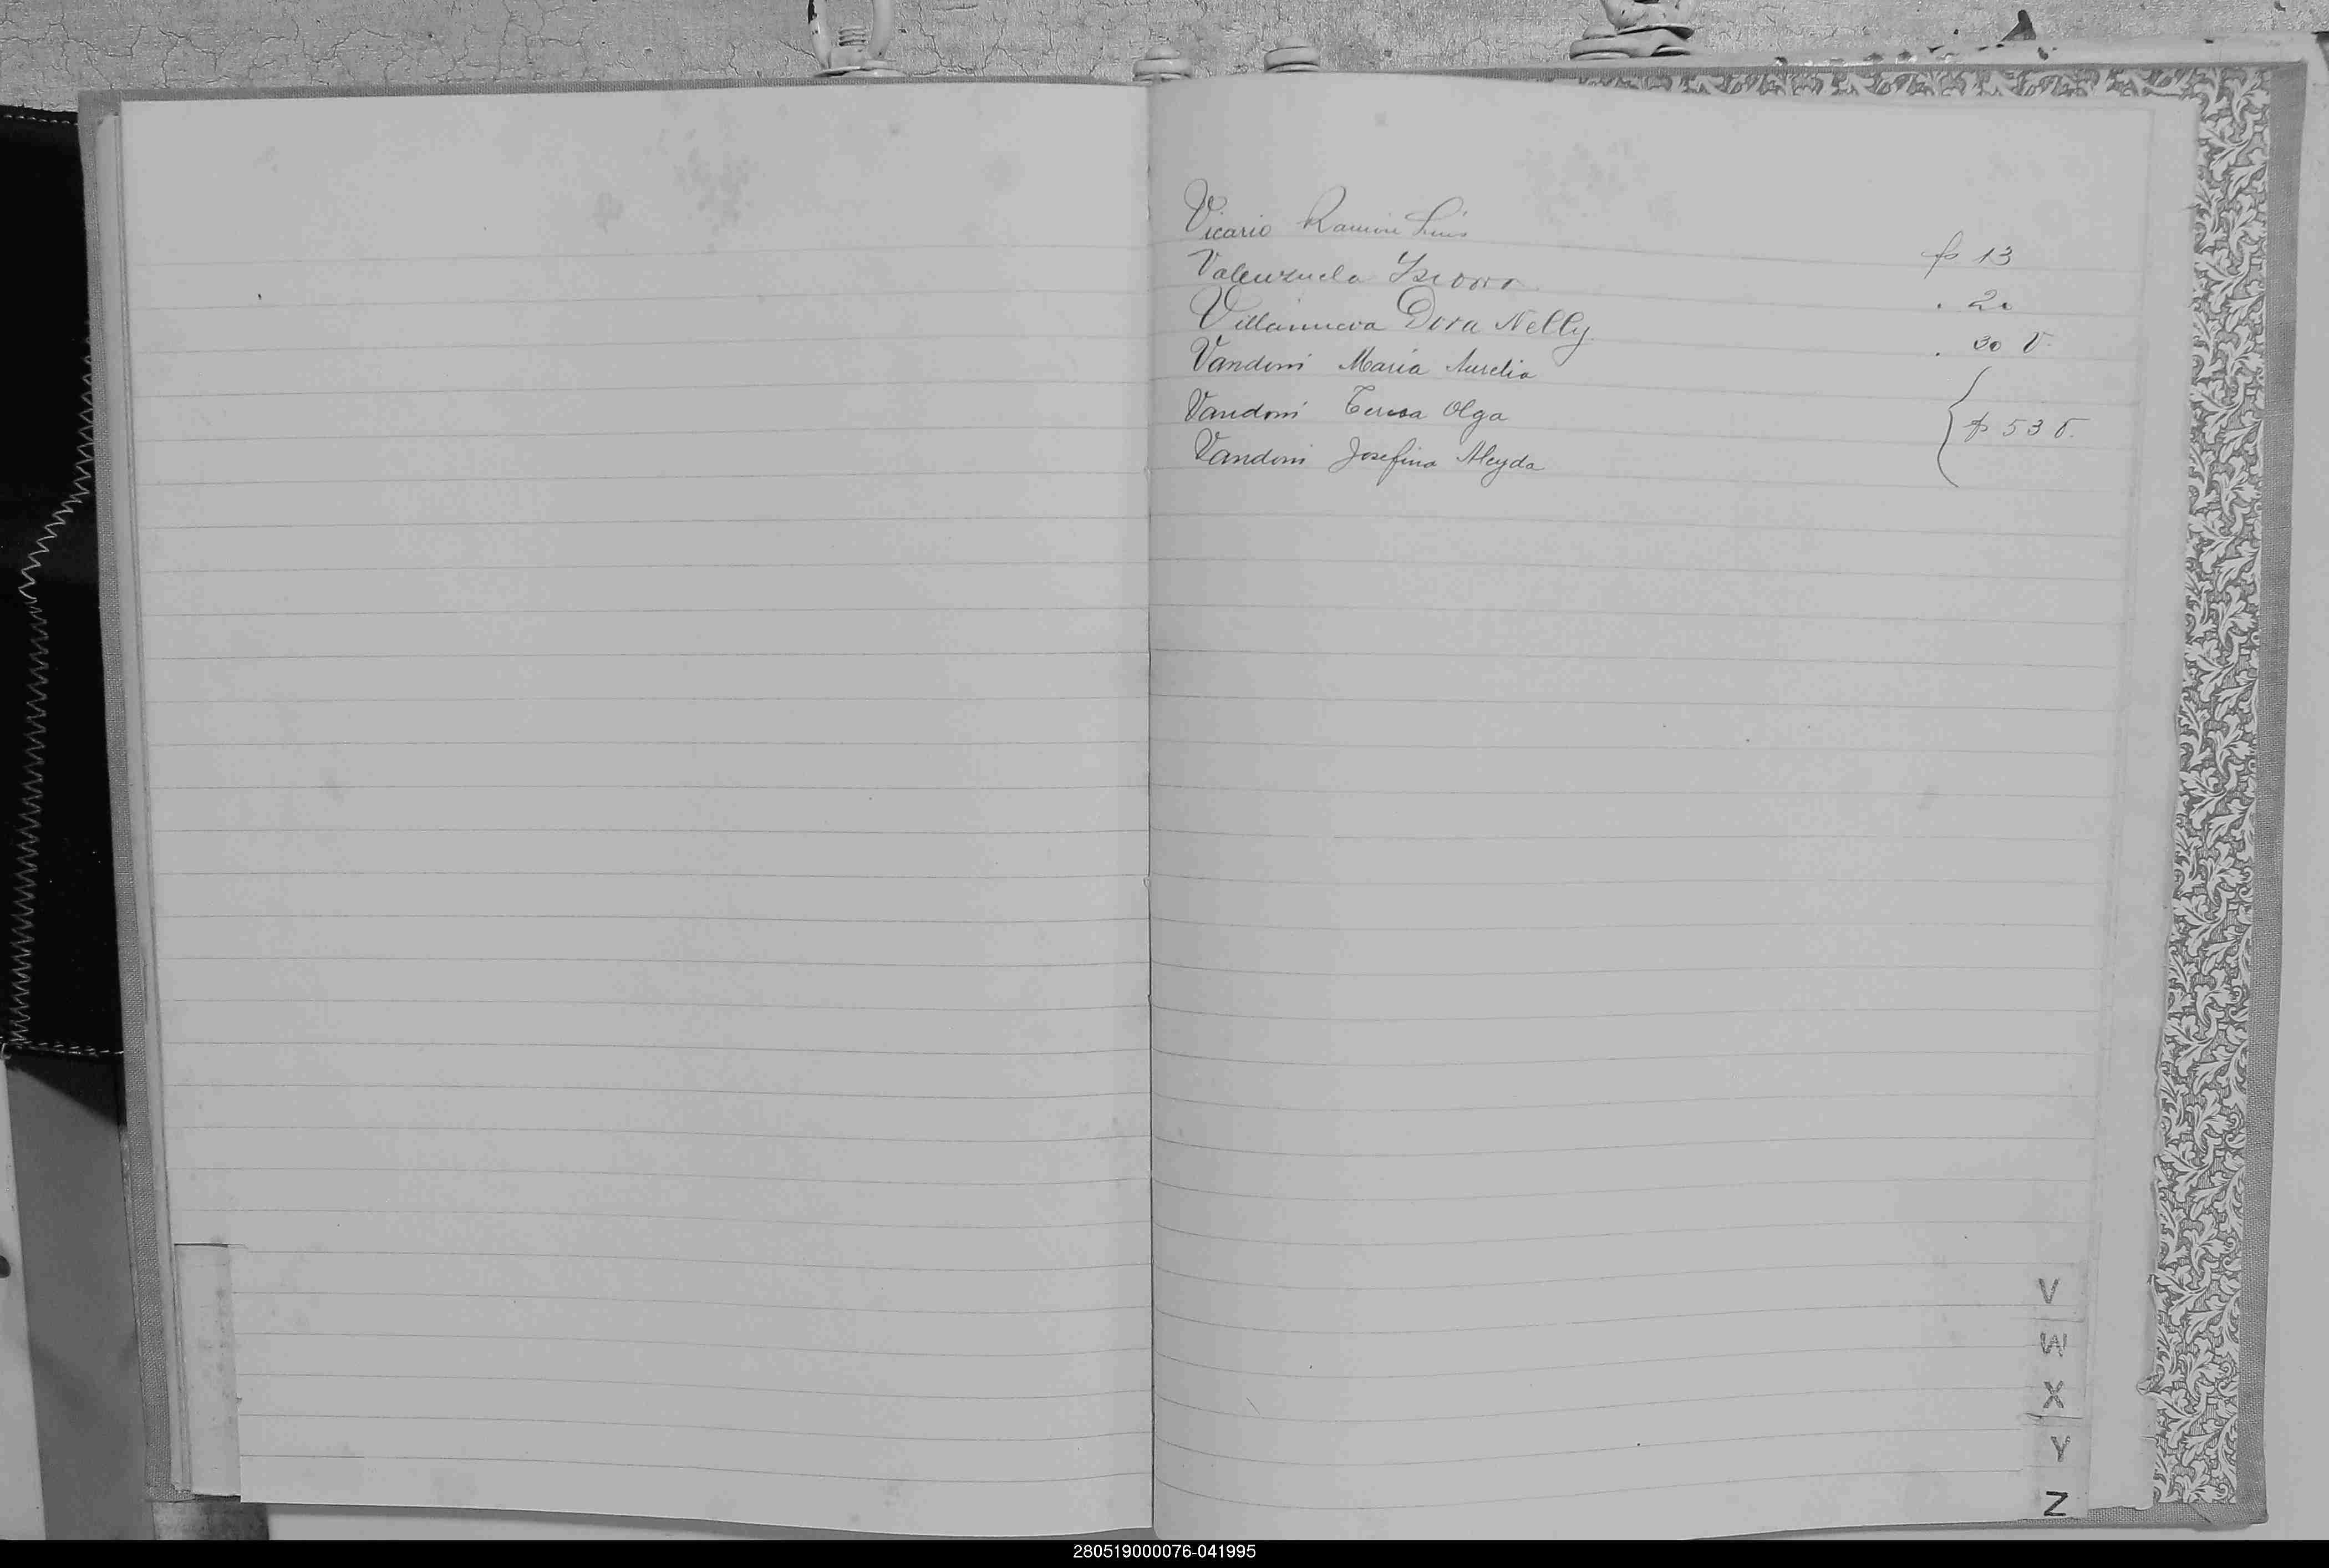 Vicario Ramón Luis p 13
Valenzuela . 20
Villanueva Dora Nelly . 30 v.
Vandoni Maria Aurelia
Vandoni Teresa Olga { p 53 v.
Vandoni Josefina Aleyda
V
W
X
Y
Z
280519000076-041995